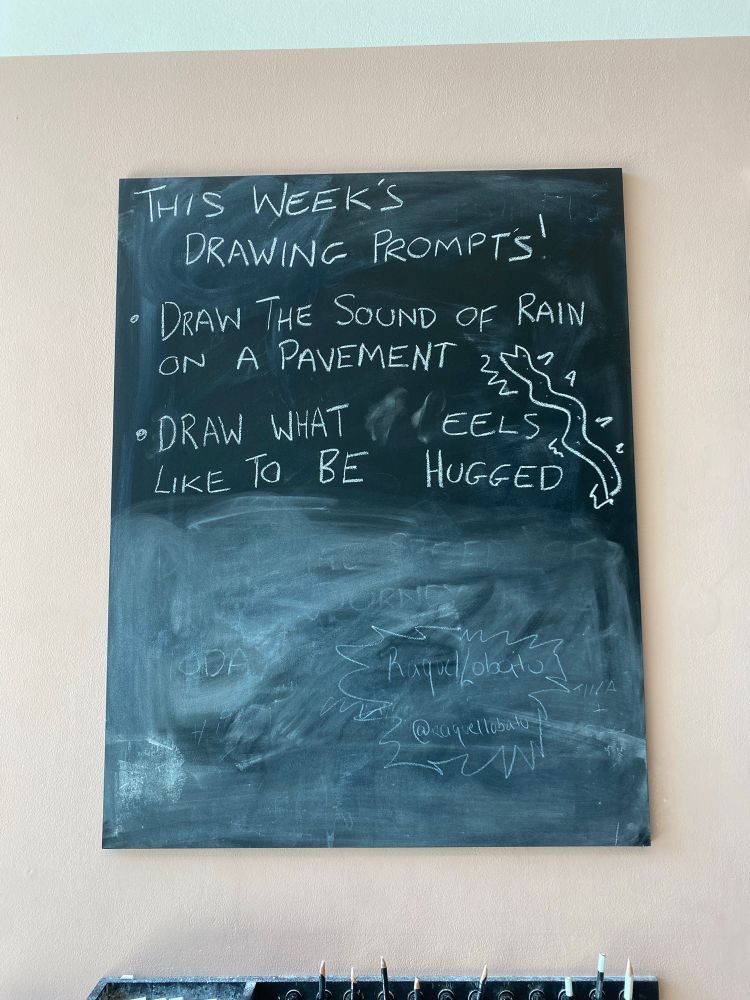 THIS WEEK'S
DRAWING PROMPTS!
• DRAW THE SOUND OF RAIN
ON A PAVEMENT
• DRAW WHAT EELS
LIKE TO BE HUGGED
SPEED OF
JOURNEY
Raquel Lobato
@raquellobato